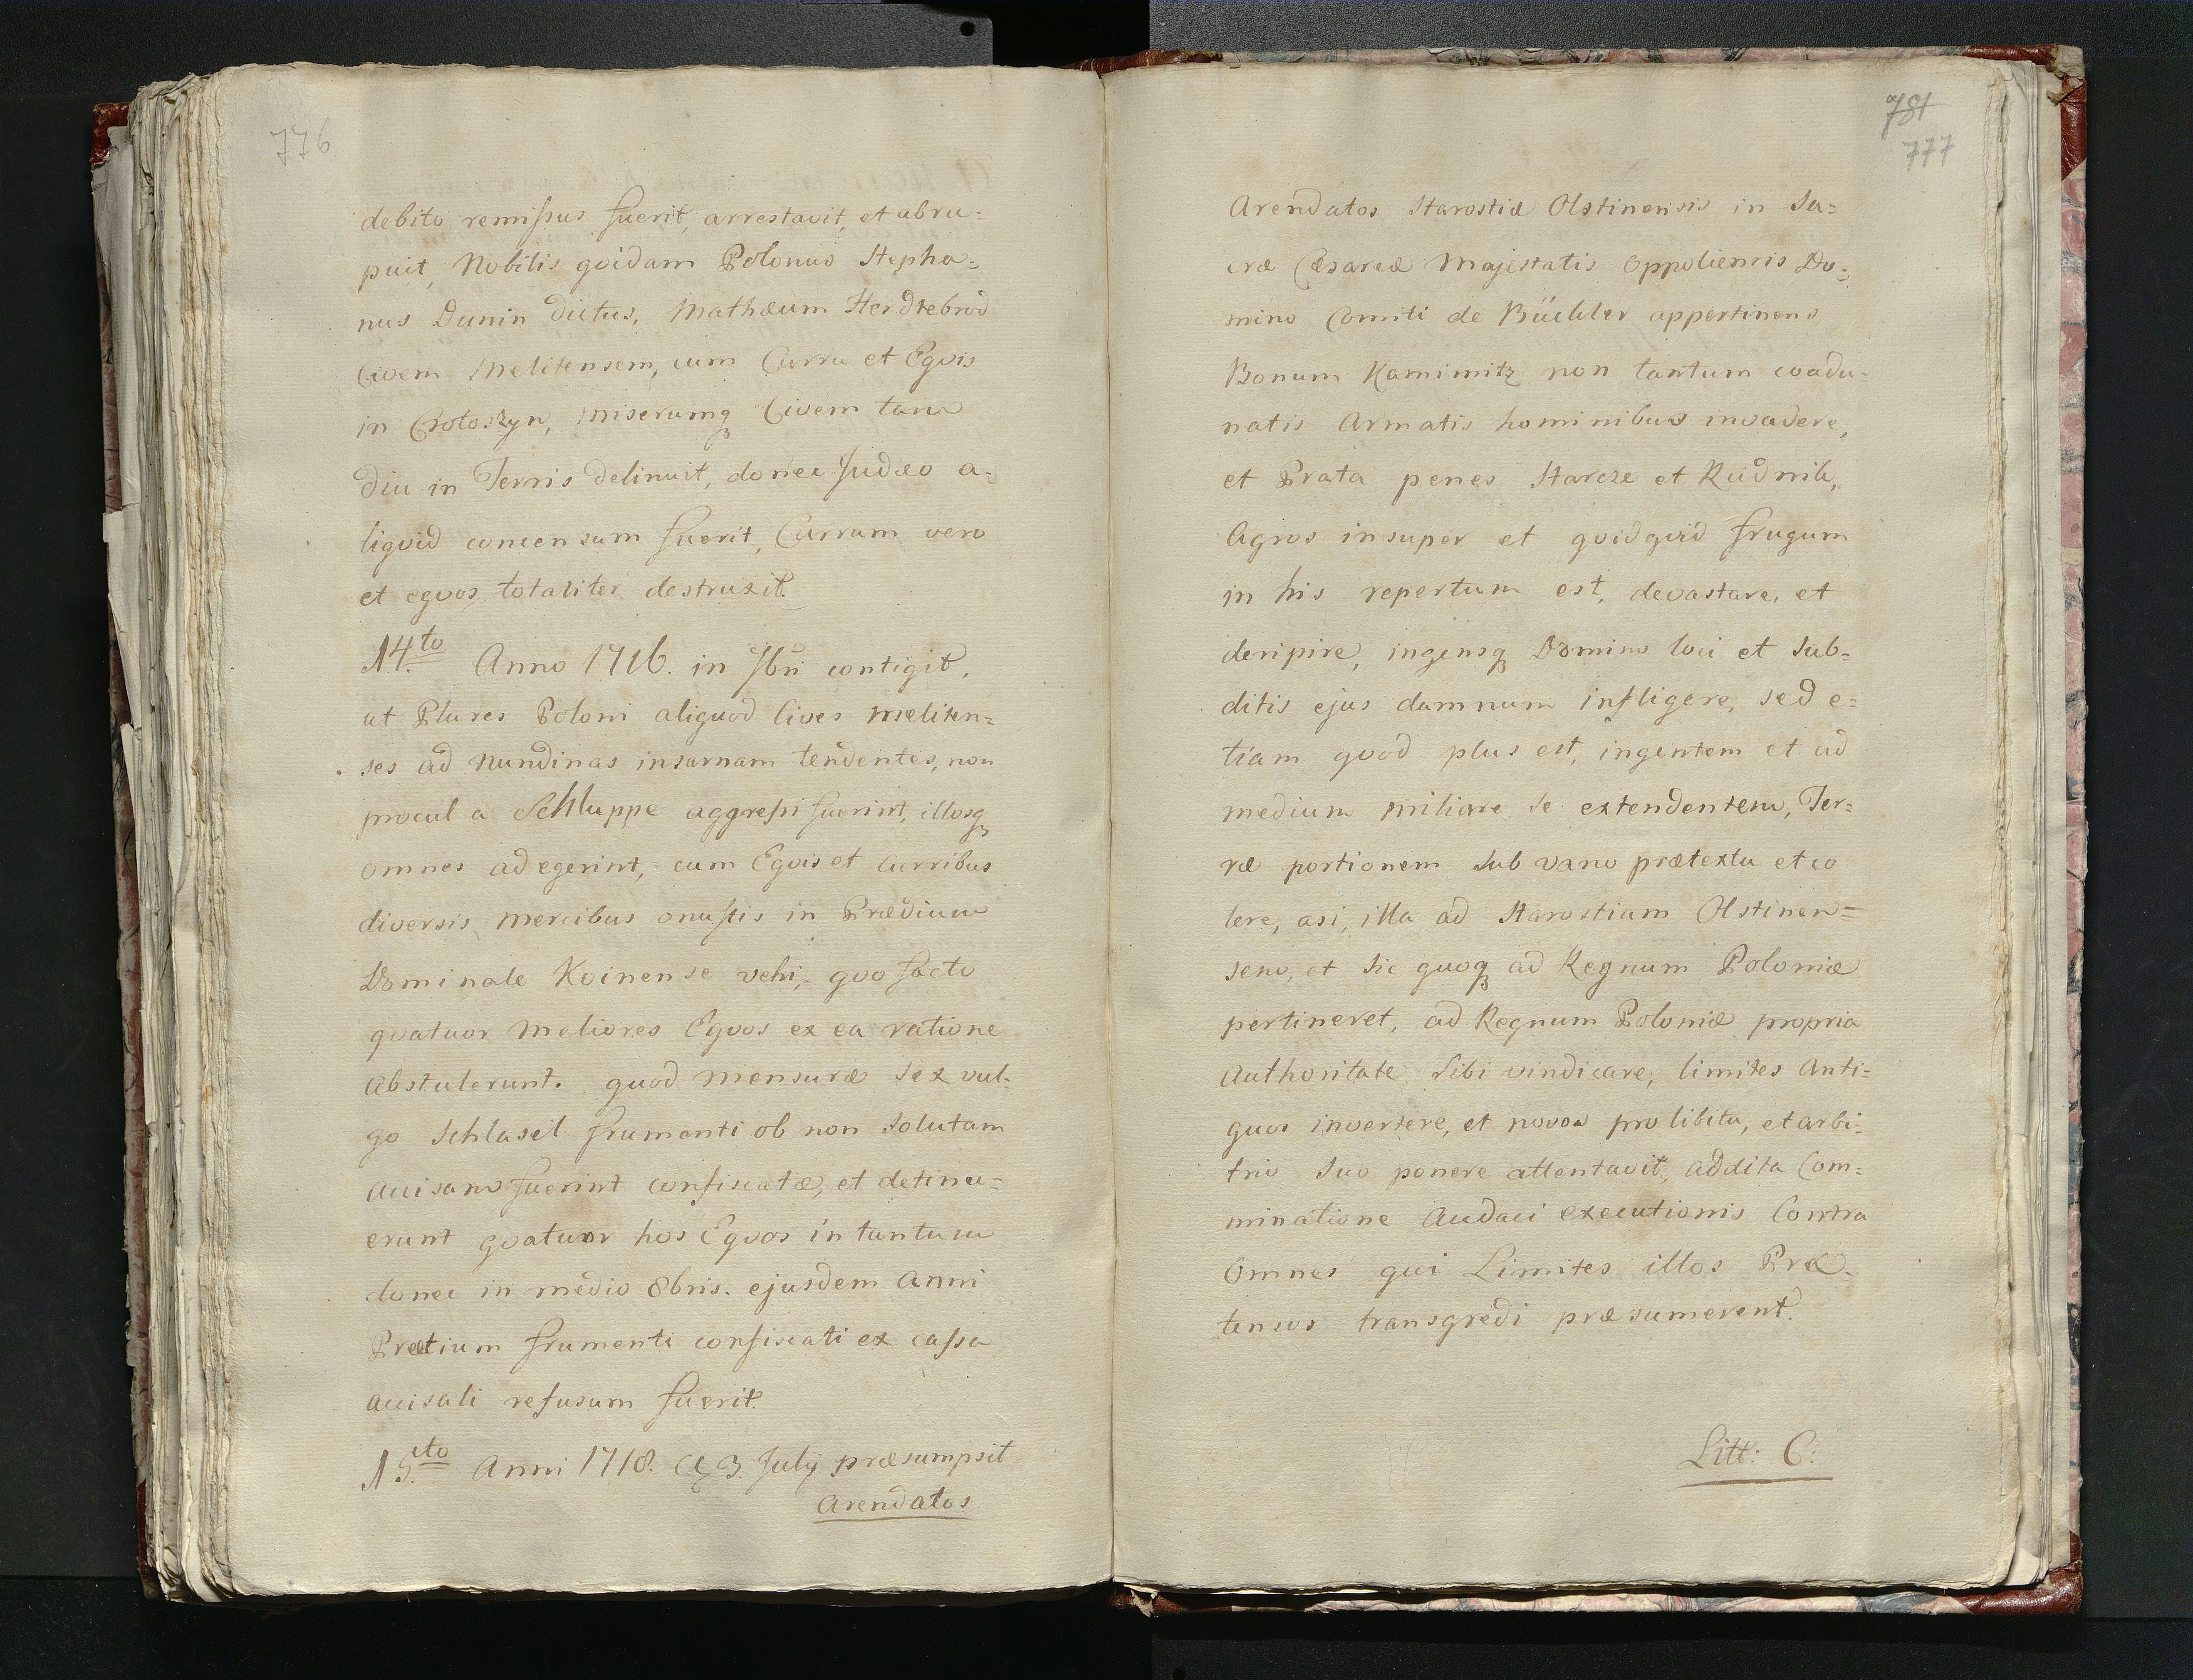 776
debito remissus fuerit, arrestavit, et abru=
puit, Nobilis quidam Polonus Stepha=
nus Dunin dictus, Mathæum Herdtebrod
Civem Melitensem, cum Curru et Equis
in Crotoszyn, miserumq Civem tam
diu in Ferris detinuit, donec Judæo a=
liquid concensum fuerit, Currum vero
et equos totaliter destruxit.
14.to Anno 1716. in 7bri contigit,
ut Plures Poloni aliquod Cives meliten=
ses ad Nundinas insarnam tendentes, non
procul a Schluppe aggressi fuerint, illosq
omnes adegerint, cum Equis et Curribus
diversis mercibus onustis in Prædium
Dominale Koinense vehi, quo facto
quatuor meliores Equos ex ea ratione
Abstulerunt. quod mensuræ sex vul=
go Schlasel frumenti ob non solutam
Accisam fuerint confiscatæ, et detinu=
erunt quatuor hos Equos in tantum
donec in medio 8bris. ejusdem Anni
Prætium frumenti confiscati ex cassa
accisali refusum fuerit.
15.to Anni 1718. 3. July præsumpsit
Arendatos
781
777
Arendatos Starostiæ Olstinensis in Sa=
cræ Cæsareæ Majestatis Oppoliensis Do=
mino Comiti de Büchler appertinens
Bonum Kamimitz non tantum coadu=
natis Armatis hominibus invadere,
et Prata penes Starcze et Rŭdnik,
Agros insuper et quidquid frugum
in his repertum est, devastare, et
deripire, ingensq Domino loci et Sub=
ditis ejus damnum infligere, sed e=
tiam quod plus est, ingentem et ad
medium miliare se extendentem, Ter=
ræ portionem sub vano prætextu et co
lere, asi, illa ad Starostiam Olstinen=
sem, et sic quoq ad Regnum Poloniæ
pertineret, ad Regnum Poloniæ propria
Authoritate sibi vindicare, limites Anti=
quos invertere, et novos pro libitu, et arbi=
trio suo ponere attentavit, addita Com=
minatione Audaci executionis Contra
Omnes qui Limites illos Præ=
tensos transgredi præsumerent.
Litt: C: